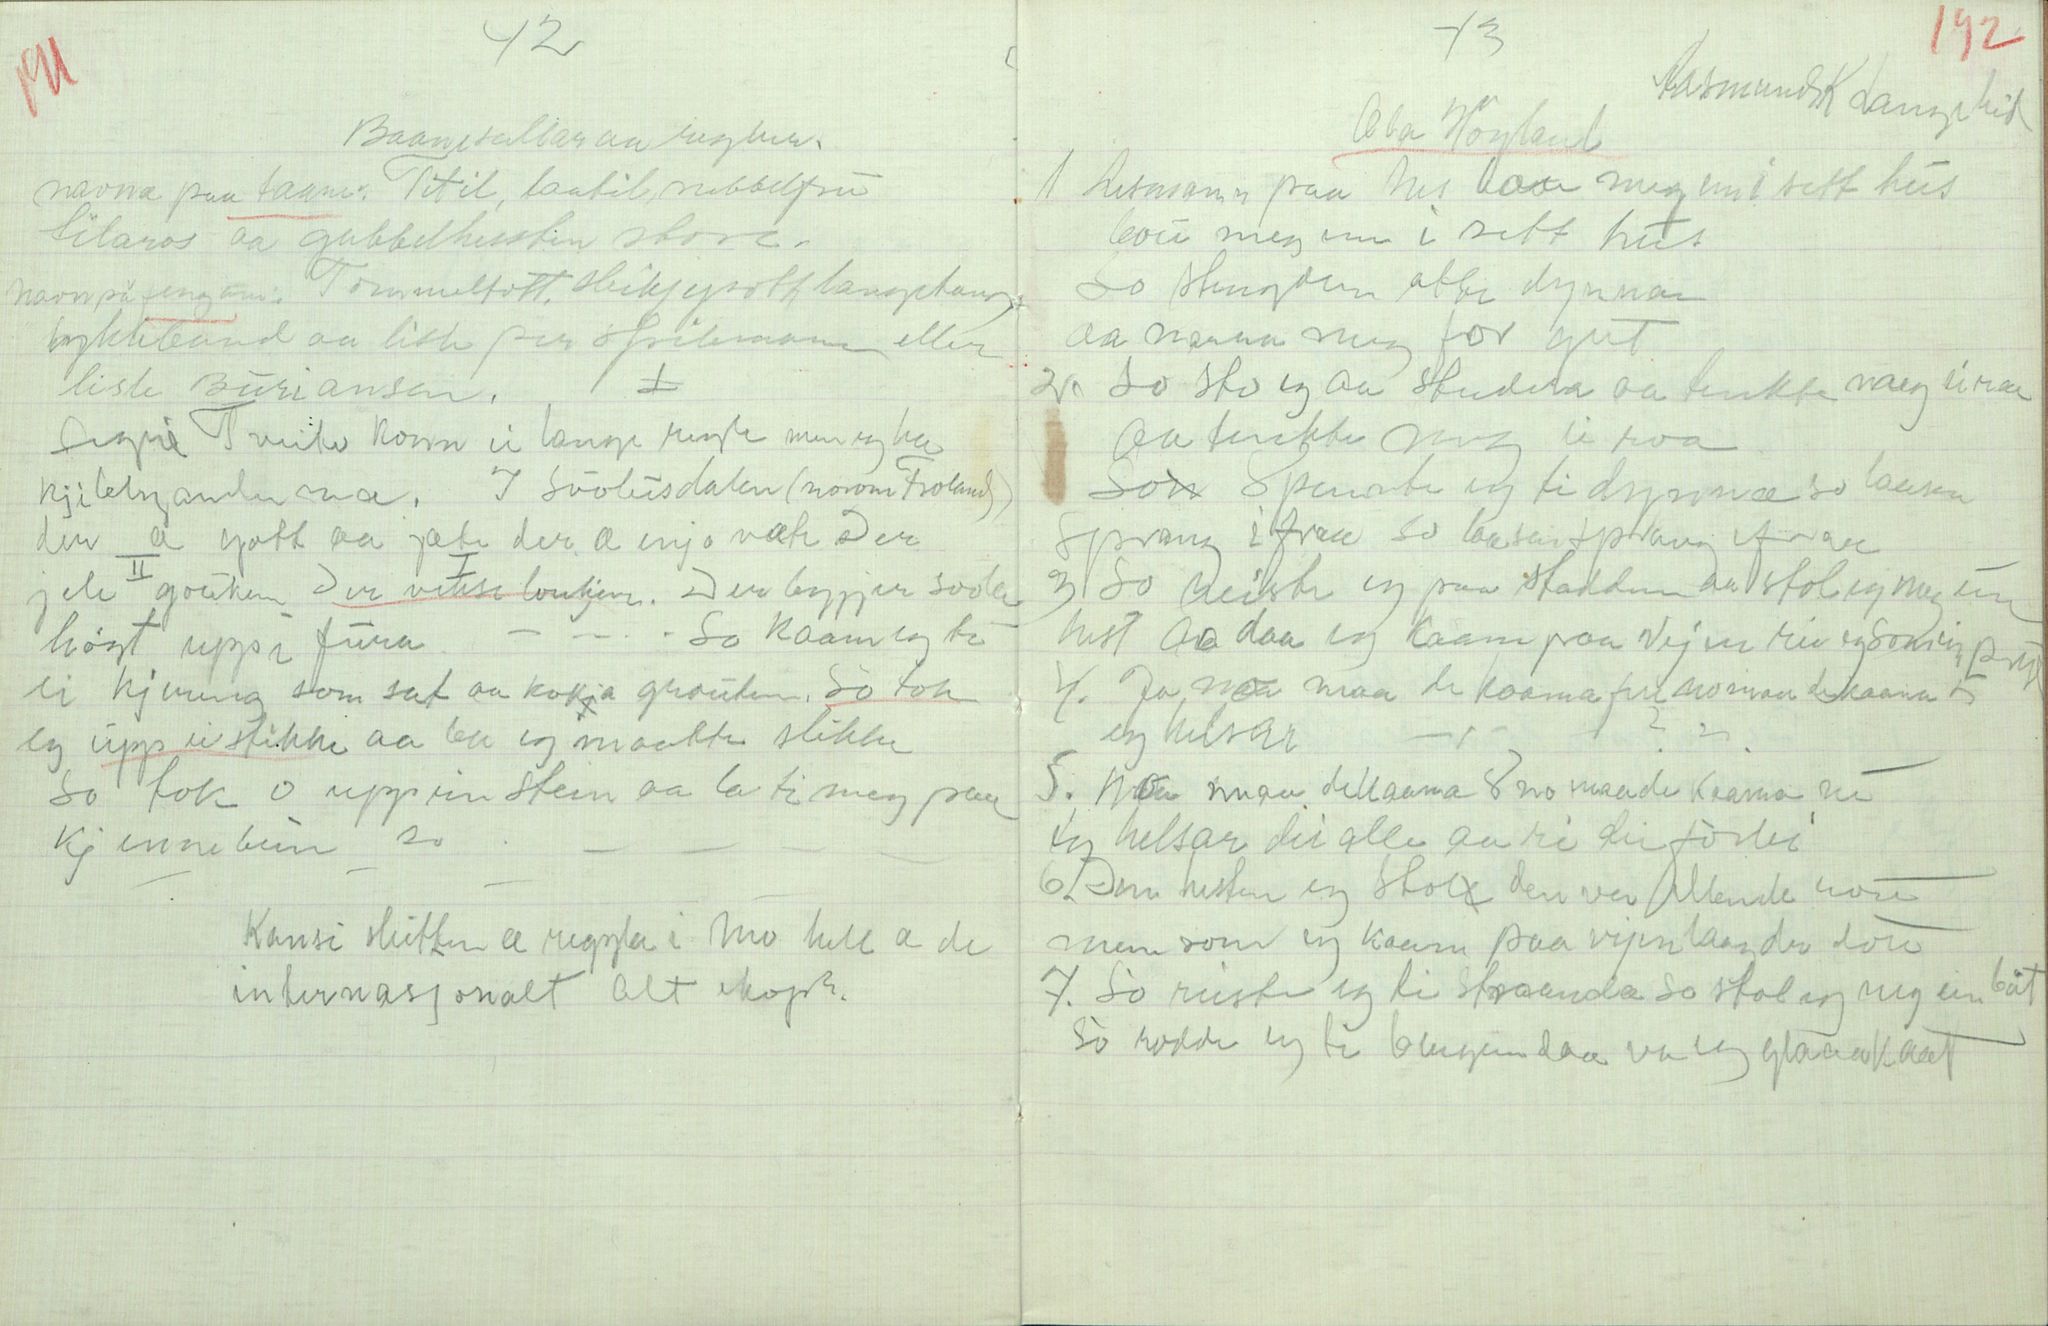 42
191
Baanesullar aa reglur.
navna paa taane: Titil, laatil, nubbelfrü
Silaros aa gubbelhesten store.
navn på fengran: Tommeltott, sleikjepott langetang,
lykkeband aa lisle per spilemann eller
lisle Büriansen.
Segjæ Tveito kom ei lange regle men eg ha
kjile andre ra. I Sööteisdalen (norom Froland)
der æ gott aa jæte der æ enjo væte Der
jele II goüken Der veise I loukjin. Der leggjer soola
högt uppi füra — — — So kaam eg te
ei kjering som sat aa kokja graüten. So tok
eg upp ei stikke aa ba eg maatte slikke
So tok o upp ein stein aa la ti meg paa
kjennebein so — — —
Kansi slutten æ reggla i Mo hell æ de
internasjonalt alt ihopr.
43
192
Aasmund K Langeli
Aba Höyland
1 Lesmann paa Nes baa meg inn i sett hüs
boü meg inn i sett hüs
So stengde en atte dynnan
aa narra meg for gut
2. So sto eg aa studera aa tenkte meg ei raa
aa tenkte meg ei raa
So spente eg ti dynnæ so laasen
sprang ifraa so laasen sprang ifraa
3 So reiste eg paa stadden aa stol eg meg ein
hest aa daa eg kaam paa vejen rei eg som ein prest
4. Ja naa maa de kaama fre no maa de kaama
eg helsar — — ? ?
5. Naa maa de kaama no maa de kaama
Eg helsar dei alle aa ri dei forbi
6. Den hesten eg stol den va
men som eg kaam paa vejen
7. So reiste eg ti straanda so stol eg meg ein båt
So rodde eg ti daa va eg gla aa kaat